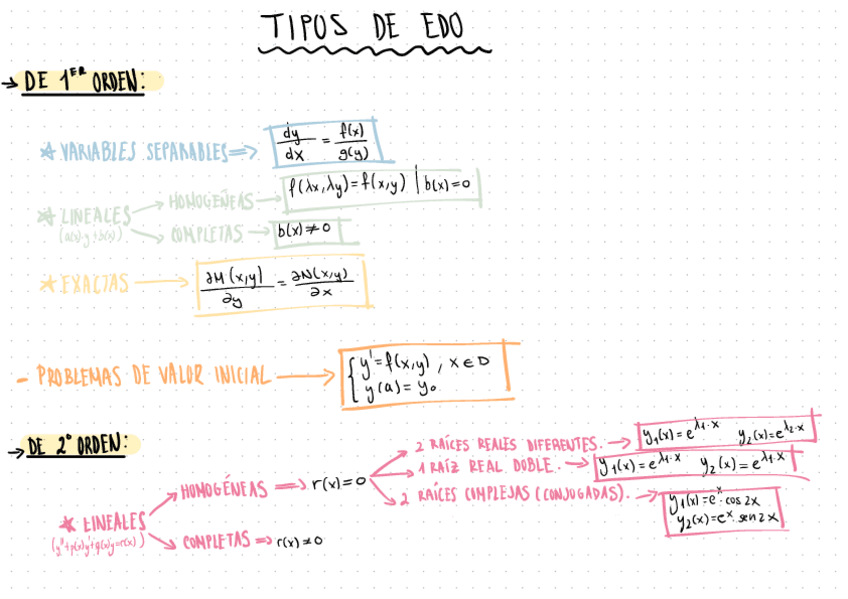 TIPOS DE EDO
→ DE 1ᴱᴿ ORDEN:
★ VARIABLES SEPARABLES ⇒ dy/dx = f(x)/g(y)
★ LINEALES → HOMOGÉNEAS → f(λx,λy)=f(x,y) | b(x)=0
(a(x)·y+b(x)) → COMPLETAS → b(x)≠0
★ EXACTAS → ∂M(x,y)/∂y = ∂N(x,y)/∂x
- PROBLEMAS DE VALOR INICIAL → { y'=f(x,y), x∈D
y(a)=y₀
→ DE 2º ORDEN:
★ LINEALES
(y''+p(x)y'+q(x)y=r(x))
→ HOMOGÉNEAS ⇒ r(x)=0
→ 2 RAÍCES REALES DIFERENTES. → y₁(x)=e^λ₁·x y₂(x)=e^λ₂·x
→ 1 RAÍZ REAL DOBLE. → y₁(x)=e^λ₁·x y₂(x)=e^λ₁·x
→ 2 RAÍCES COMPLEJAS (CONJUGADAS). → y₁(x)=eˣ·cos2x
y₂(x)=eˣ·sen2x
→ COMPLETAS ⇒ r(x)≠0